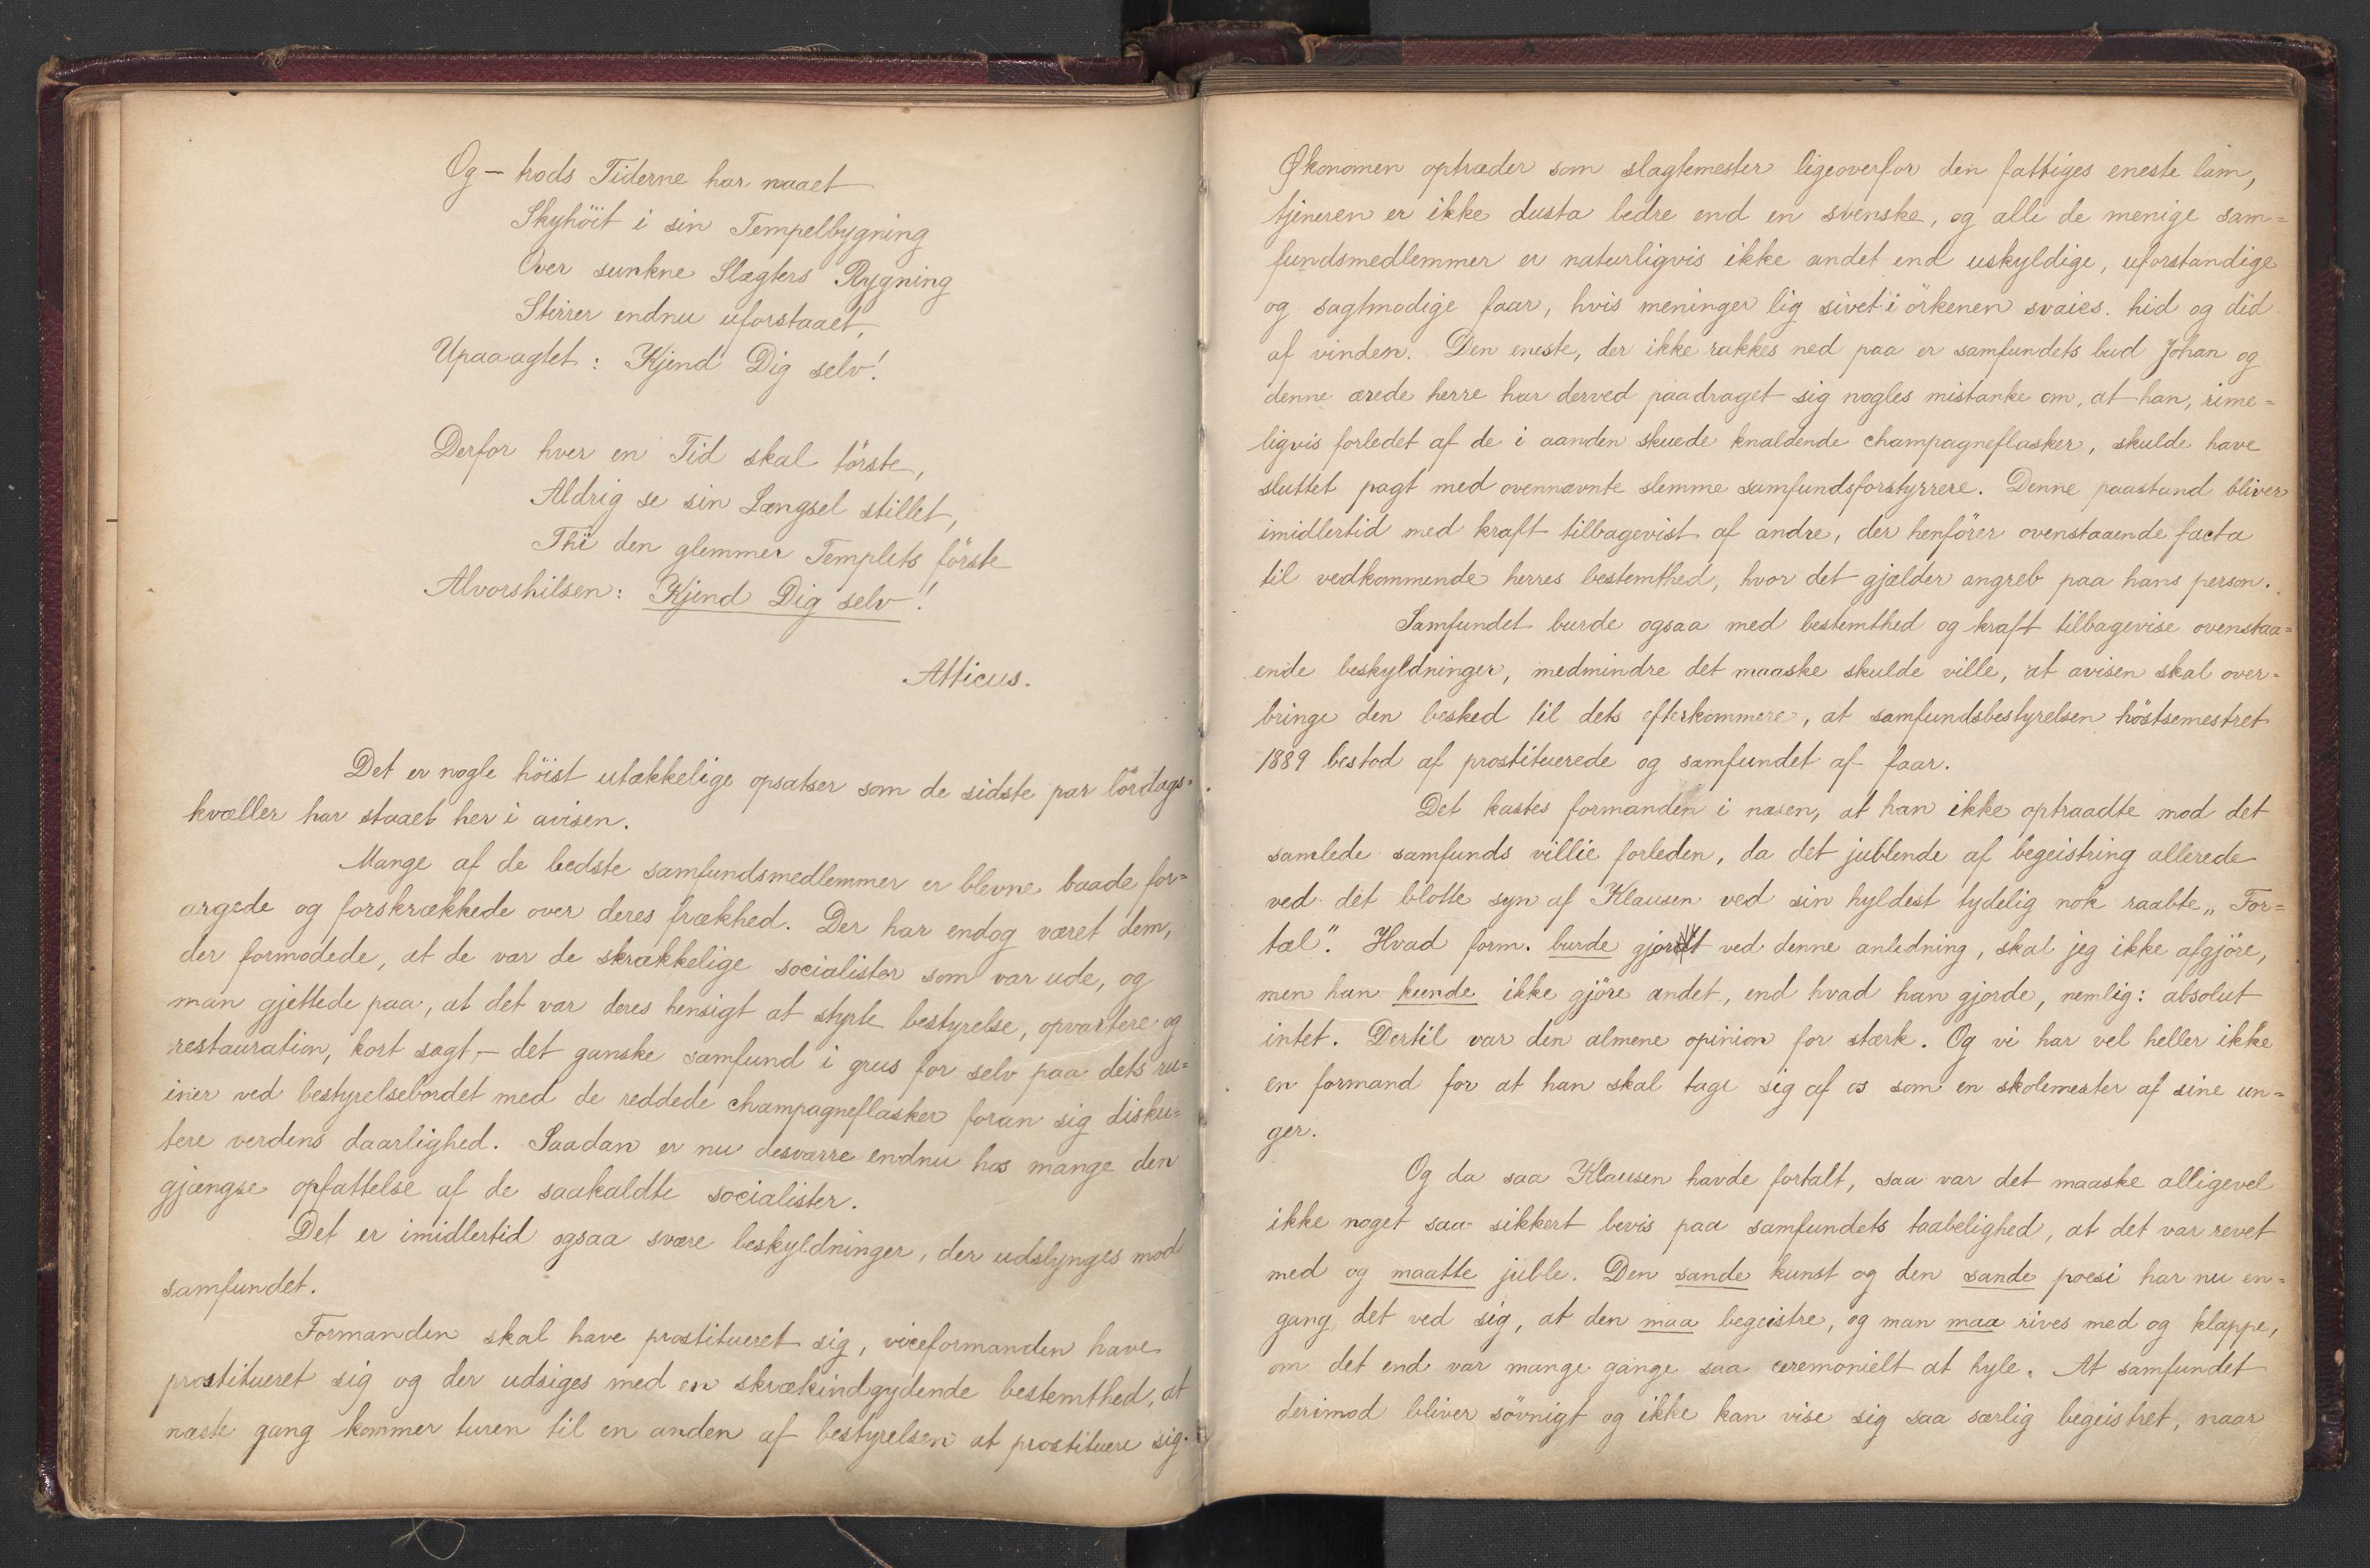 Og – trods Tiderne har naaet
Skyhöit i sin Tempelbygning
Over sunkne Slægters Rygning
Stirrer endnu uforstaaet,
Upaaagtet: Kjend Dig selv!
Derfor hver en Tid skal törste,
Aldrig se sin Længsel stillet,
Thi den glemmer Templets förste
Alvorshilsen: Kjend Dig selv!
Atticus.
Det er nogle höist utækkelige opsatser som de sidste par lördags=
kvæller har staaet her i avisen.
Mange af de bedste samfundsmedlemmer er blevne baade for=
argede og forskrækkede over deres frækhed. Der har endog været dem,
der formodede, at de var de skrækkelige socialister som var ude, og
man gjettede paa, at det var deres hensigt at styrte bestyrelse, opvartere og
restauration, kort sagt, – det ganske samfund i grus for selv paa dets ru=
iner ved bestyrelsebordet med de reddede champagneflasker foran sig disku=
tere verdens daarlighed. Saadan er nu desværre endnu hos mange den
gjængse opfattelse af de saakaldte socialister.
Det er imidlertid ogsaa svære beskyldninger, der udslynges mod
samfundet.
Formanden skal have prostitueret sig, viceformanden have
prostitueret sig og der udsiges med en skrækindgydende bestemthed, at
næste gang kommer turen til en anden af bestyrelsen at prostituere sig.
Økonomen optræder som slagtemester ligeoverfor den fattiges eneste lam,
tjeneren er ikke dusta bedre end en svenske, og alle de menige sam=
fundsmedlemmer er naturligvis ikke andet end uskyldige, uforstandige
og sagtmodige faar, hvis meninger lig sivet i örkenen svaies hid og did
af vinden. Den eneste, der ikke rakkes ned paa er samfundets bud Johan og
denne ærede herre har derved paadraget sig nogles mistanke om, at han, rime=
ligvis forledet af de i aanden skuede knaldende champagneflasker, skulde have
sluttet pagt med ovennævnte slemme samfundsforstyrrere. Denne paastand bliver
imidlertid med kraft tilbagevist af andre, der henförer ovenstaaende facta
til vedkommende herres bestemthed, hvor det gjælder angreb paa hans person.
Samfundet burde ogsaa med bestemthed og kraft tilbagevise ovenstaa=
ende beskyldninger, medmindre det maaske skulde ville, at avisen skal over=
bringe den besked til dets efterkommere, at samfundsbestyrelsen höstsemestret
1889 bestod af prostituerede og samfundet af faar.
Det kastes formanden i næsen, at han ikke optraadte mod det
samlede samfunds villie forleden, da det jublende af begeistring allerede
ved det blotte syn af Klausen ved sin hyldest tydelig nok raabte „For=
tæl". Hvad form. burde gjort ved denne anledning, skal jeg ikke afgjöre,
men han kunde ikke gjöre andet, end hvad han gjorde, nemlig: absolut
intet. Dertil var den almene opinion for stærk. Og vi har vel heller ikke
en formand for at han skal tage sig af os som en skolemester af sine un=
ger.
Og da saa Klausen havde fortalt, saa var det maaske alligevel
ikke noget saa sikkert bevis paa samfundets taabelighed, at det var revet
med og maatte juble. Den sande kunst og den sande poesi har nu en=
gang det ved sig, at den maa begeistre, og man maa rives med og klappe,
om det end var mange gange saa ceremonielt at hyle. At samfundet
derimod bliver sövnigt og ikke kan vise sig saa særlig begeistret, naar